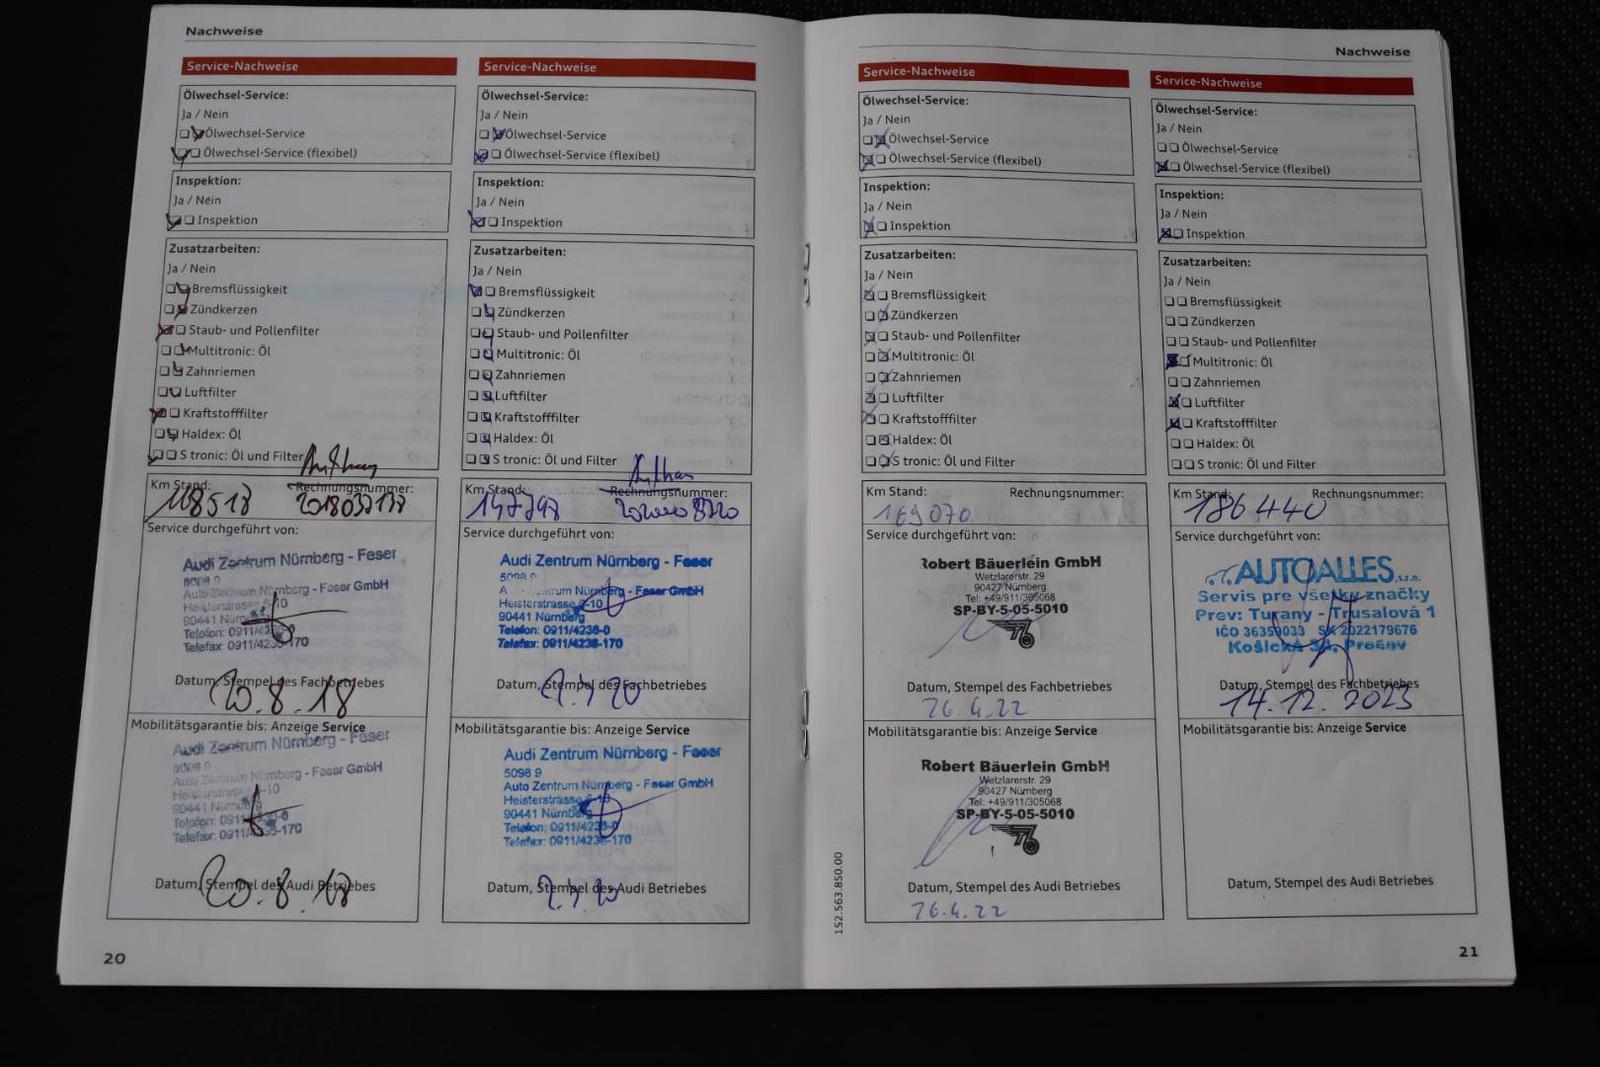 Nachweise
Service-Nachweise
Ölwechsel-Service:
Ja / Nein
Ölwechsel-Service
Ölwechsel-Service (flexibel)
Inspektion:
Ja / Nein
Inspektion
Zusatzarbeiten:
Ja / Nein
Bremsflüssigkeit
Zündkerzen
Staub- und Pollenfilter
Multitronic: Öl
Zahnriemen
Luftfilter
Kraftstofffilter
Haldex: Öl
S tronic: Öl und Filter
Km Stand: Rechnungsnummer:
118518
Service durchgeführt von:
Audi Zentrum Nürnberg - Feser
5098 9
Auto Zentrum Nürnberg - Feser GmbH
Heisterstrasse 6-10
90441 Nürnberg
Telefon: 0911/4236-0
Telefax: 0911/4236-170
Datum, Stempel des Fachbetriebes
20.8.18
Mobilitätsgarantie bis: Anzeige Service
Audi Zentrum Nürnberg - Feser
5098 9
Auto Zentrum Nürnberg - Feser GmbH
Heisterstrasse 6-10
90441 Nürnberg
Telefon: 0911/4236-0
Telefax: 0911/4236-170
Datum, Stempel des Audi Betriebes
20.8.18
20
Service-Nachweise
Ölwechsel-Service:
Ja / Nein
Ölwechsel-Service
Ölwechsel-Service (flexibel)
Inspektion:
Ja / Nein
Inspektion
Zusatzarbeiten:
Ja / Nein
Bremsflüssigkeit
Zündkerzen
Staub- und Pollenfilter
Multitronic: Öl
Zahnriemen
Luftfilter
Kraftstofffilter
Haldex: Öl
S tronic: Öl und Filter
Km Stand: Rechnungsnummer:
Service durchgeführt von:
Audi Zentrum Nürnberg - Feser
5098 9
Zentrum Nürnberg - Feser GmbH
Heisterstrasse 6-10
90441 Nürnberg
Telefon: 0911/4236-0
Telefax: 0911/4236-170
Datum, Stempel des Fachbetriebes
Mobilitätsgarantie bis: Anzeige Service
Audi Zentrum Nürnberg - Feser
5098 9
Auto Zentrum Nürnberg - Feser GmbH
Heisterstrasse 6-10
90441 Nürnberg
Telefon: 0911/4236-0
Telefax: 0911/4236-170
Datum, Stempel des Audi Betriebes
Nachweise
Service-Nachweise
Ölwechsel-Service:
Ja / Nein
Ölwechsel-Service
Ölwechsel-Service (flexibel)
Inspektion:
Ja / Nein
Inspektion
Zusatzarbeiten:
Ja / Nein
Bremsflüssigkeit
Zündkerzen
Staub- und Pollenfilter
Multitronic: Öl
Zahnriemen
Luftfilter
Kraftstofffilter
Haldex: Öl
S tronic: Öl und Filter
Km Stand: Rechnungsnummer:
169070
Service durchgeführt von:
Robert Bäuerlein GmbH
Wetzlarerstr. 29
90427 Nürnberg
Tel: +49/911/305068
SP-BY-5-05-5010
Datum, Stempel des Fachbetriebes
26.4.22
Mobilitätsgarantie bis: Anzeige Service
Robert Bäuerlein GmbH
Wetzlarerstr. 29
90427 Nürnberg
Tel: +49/911/305068
SP-BY-5-05-5010
Datum, Stempel des Audi Betriebes
26.4.22
152.563.850.00
Service-Nachweise
Ölwechsel-Service:
Ja / Nein
Ölwechsel-Service
Ölwechsel-Service (flexibel)
Inspektion:
Ja / Nein
Inspektion
Zusatzarbeiten:
Ja / Nein
Bremsflüssigkeit
Zündkerzen
Staub- und Pollenfilter
Multitronic: Öl
Zahnriemen
Luftfilter
Kraftstofffilter
Haldex: Öl
S tronic: Öl und Filter
Km Stand: Rechnungsnummer:
186440
Service durchgeführt von:
AUTOALLES s.r.o.
Servis pre všetky značky
Prev: Turany - Trusalová 1
IČO 36359033 SK 2022179676
Košická 3A, Prešov
Datum, Stempel des Fachbetriebes
14.12.2023
Mobilitätsgarantie bis: Anzeige Service
Datum, Stempel des Audi Betriebes
21